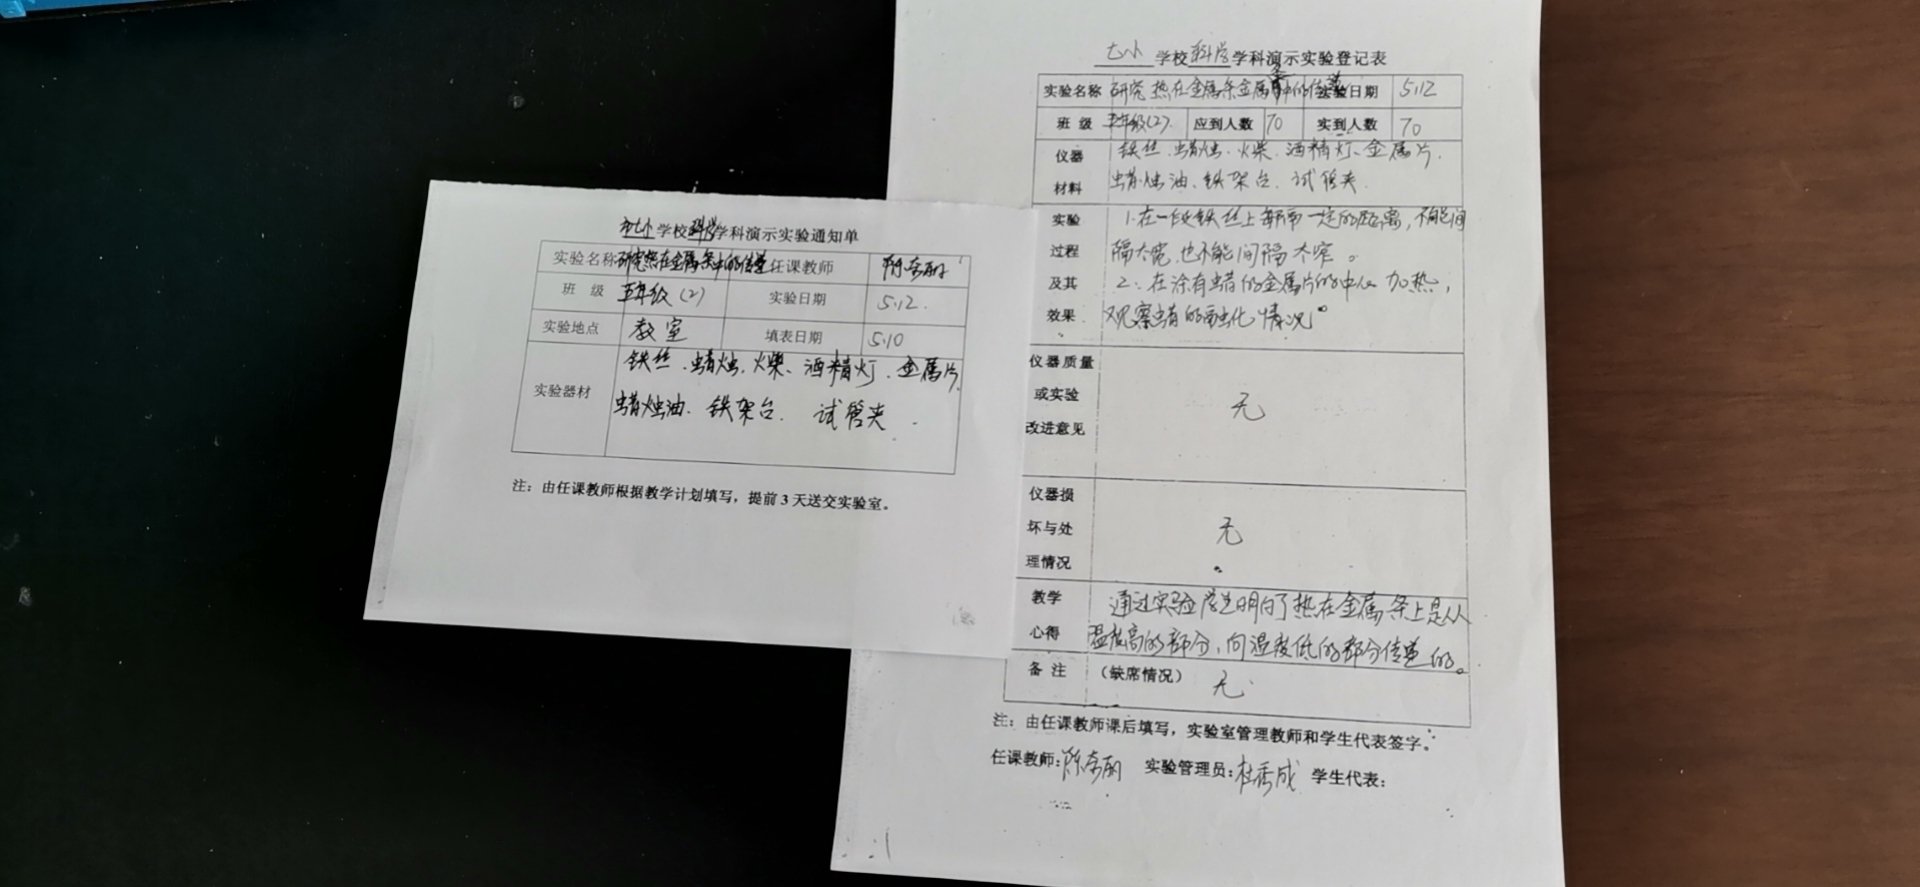 市七小学校科学学科演示实验通知单
实验名称 研究热在金属条中的传递 任课教师 陈秀丽
班 级 五年级(2) 实验日期 5.12.
实验地点 教室 填表日期 5.10
实验器材 铁丝、蜡烛、火柴、酒精灯、金属片、
蜡烛油、铁架台、试管夹
注：由任课教师根据教学计划填写，提前3天送交实验室。
七小 学校科学学科演示实验登记表
实验名称 研究热在金属条金属中的传 实验日期 5.12
班 级 五年级(2) 应到人数 70 实到人数 70
仪器 铁丝、蜡烛、火柴、酒精灯、金属片、
材料 蜡烛油、铁架台、试管夹
实验 1.在一段铁丝上每隔一定的距离，不能间
过程 隔太宽，也不能间隔太窄。
及其 2、在涂有蜡的金属片的中心加热，
效果 观察蜡的融化情况。
仪器质量
或实验 无
改进意见
仪器损
坏与处 无
理情况
教学 通过实验学生明白了热在金属条上是从
心得 温度高的部分，向温度低的部分传递的。
备 注 （缺席情况） 无
注：由任课教师课后填写，实验室管理教师和学生代表签字。
任课教师：陈秀丽 实验管理员：杜秀成 学生代表：